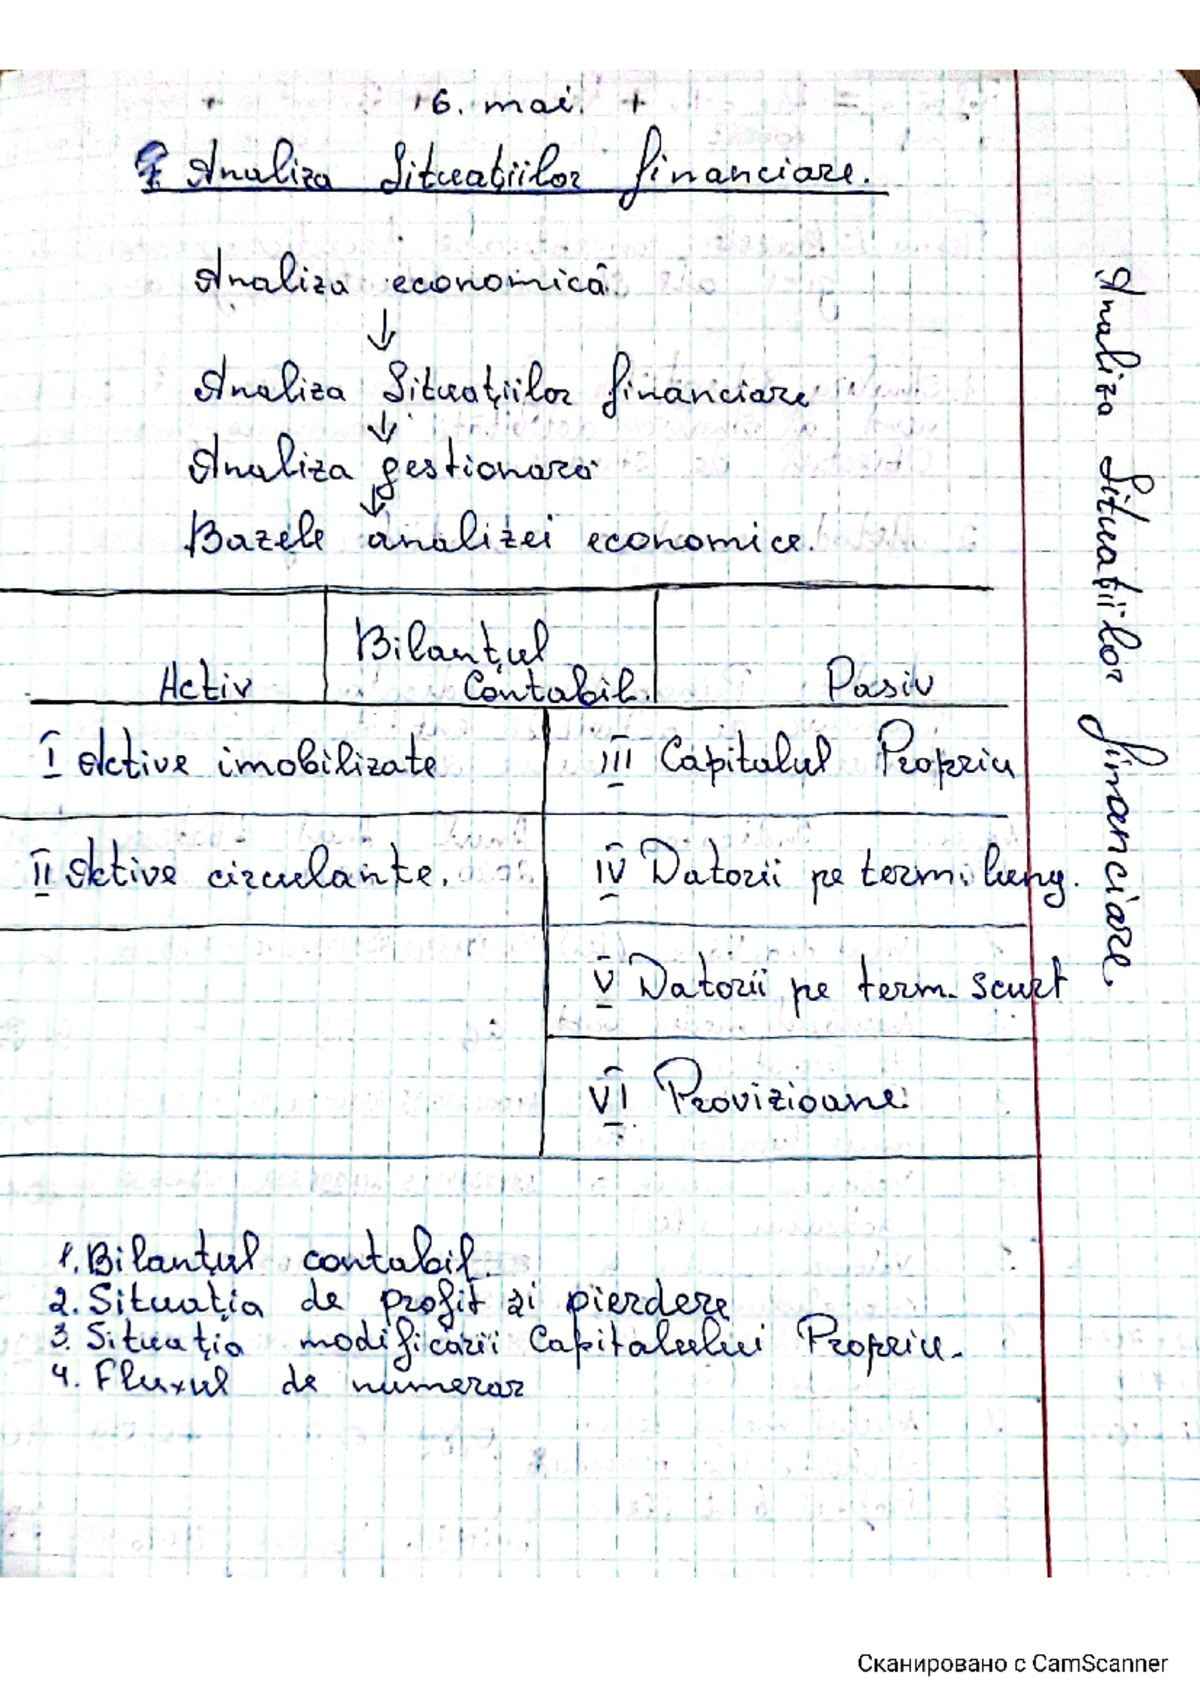 6. mai.
Analiza Situațiilor financiare.
Analiza economică
↓
Analiza Situațiilor financiare
↓
Analiza gestionară
↓
Bazele analizei economice.
Activ
Bilanțul
Contabil.
Pasiv
I Active imobilizate
III Capitalul Propriu
II Active circulante.
IV Datorii pe term. lung.
V Datorii pe term. scurt
VI Provizioane.
1. Bilanțul contabil.
2. Situația de profit și pierdere
3. Situația modificării Capitalului Propriu.
4. Fluxul de numerar
Analiza Situațiilor financiare.
Сканировано с CamScanner